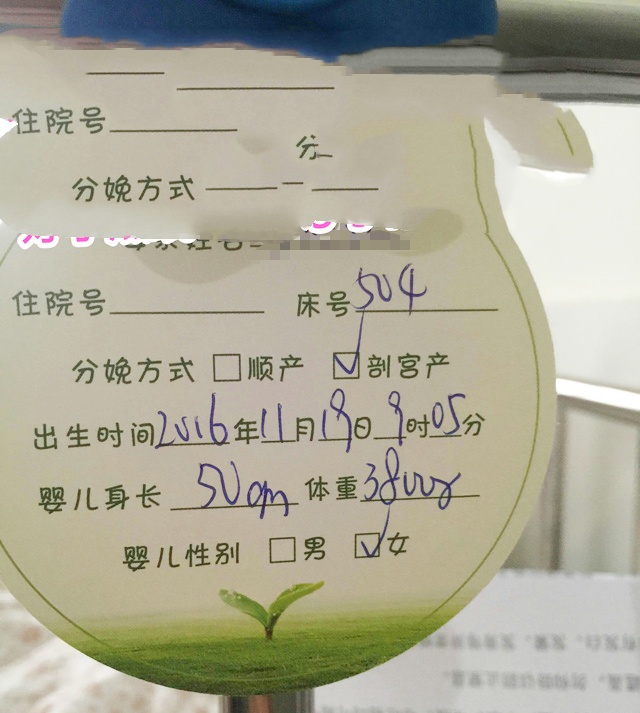 住院号
分
分娩方式
住院号 床号 504
分娩方式 □顺产 ☑剖宫产
出生时间 2016年11月19日9时05分
婴儿身长 50cm 体重 3800g
婴儿性别 □男 ☑女